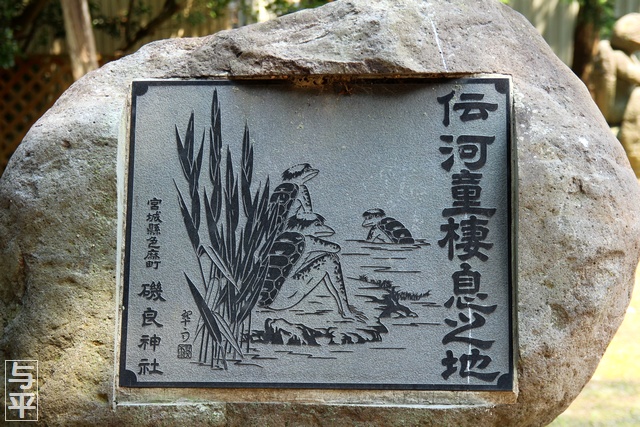 伝河童棲息之地
宮城縣色麻町
磯良神社
与平